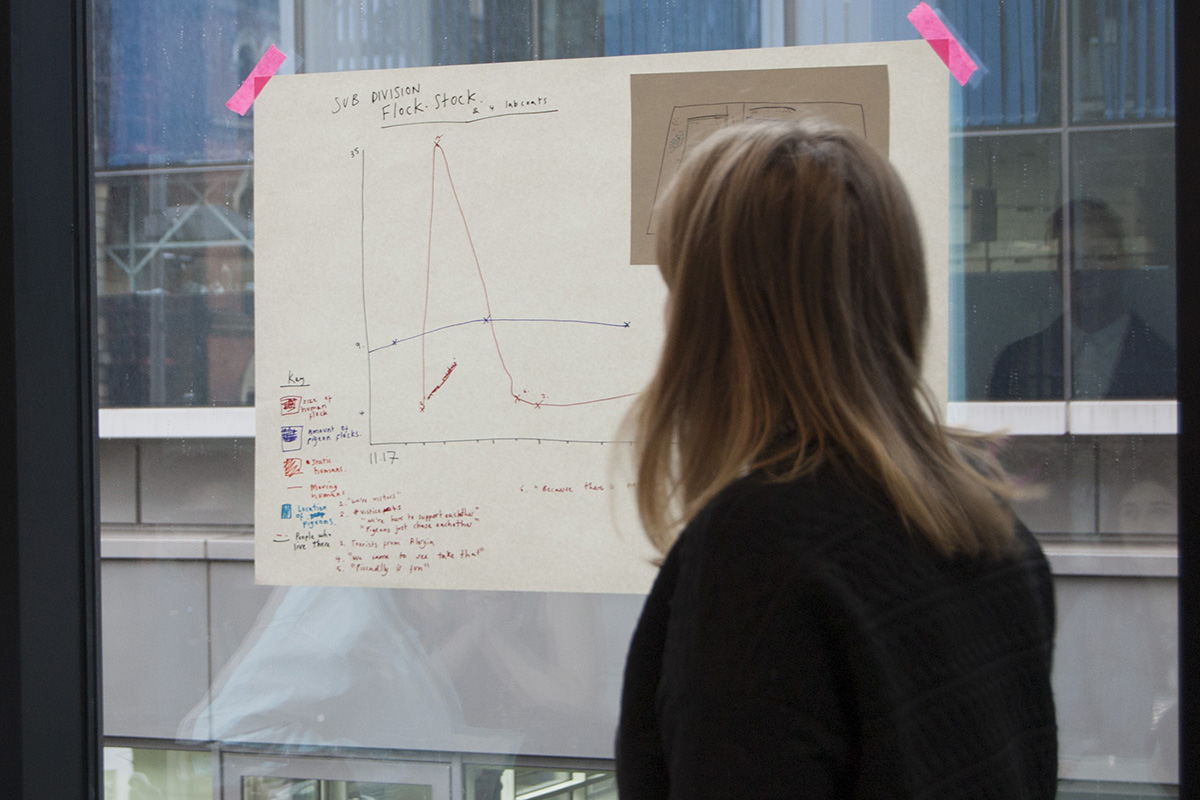 SUB DIVISION
Flock-Stock.
& 4 labcoats
35
9
Key
size of human flock
Amount of pigeon flocks.
Static humans.
Moving humans
Location of pigeons.
People who love there
11.17
1. "we're visitors"
2. #justice
"we're here to support eachother"
"Pigeons just chase eachother"
3. Tourists from Algeria
4. "we came to see take that"
5. "Piccadilly is fun"
6. "Because there is